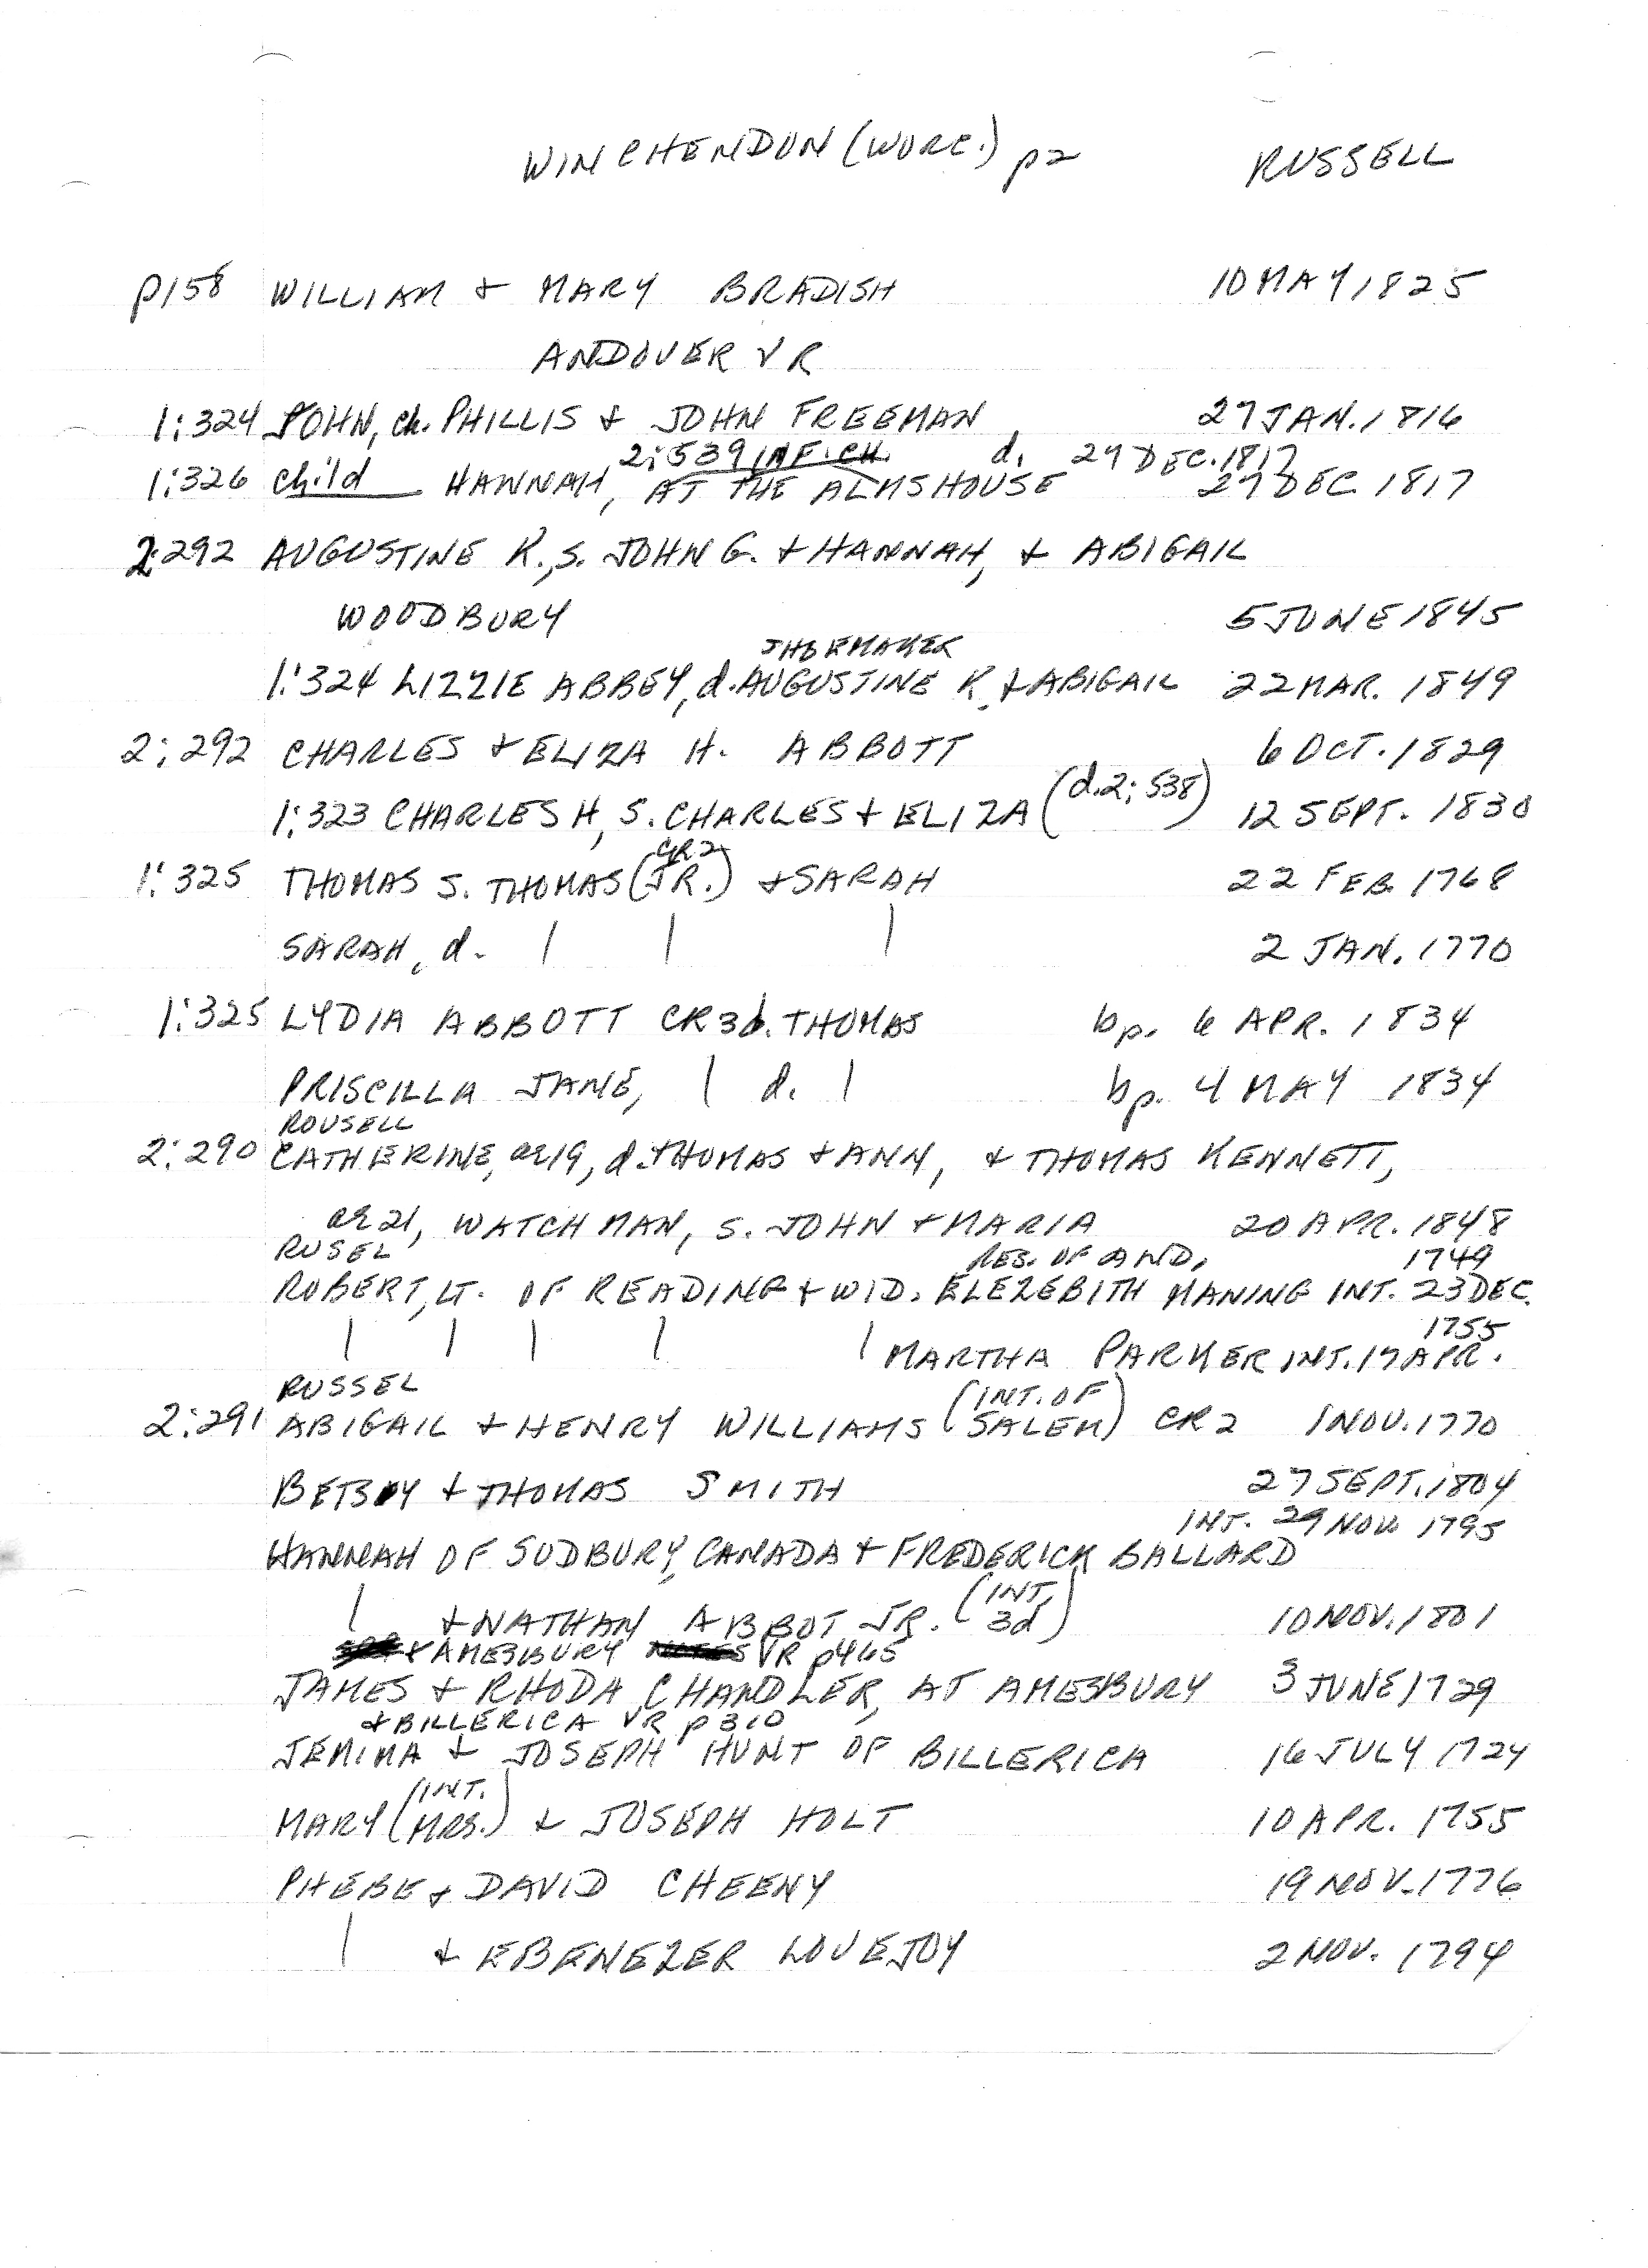 WINCHENDON (WORC.) p2 RUSSELL
p158 WILLIAM & MARY BRADISH 10 MAY 1825
ANDOVER VR
1:324 JOHN, ch. PHILLIS & JOHN FREEMAN 27 JAN. 1816
2:539 INF. CH. d. 29 DEC. 1817
1:326 child ___ HANNAH, AT THE ALMSHOUSE 27 DEC 1817
2:292 AUGUSTINE K., S. JOHN G. & HANNAH, & ABIGAIL
WOODBURY 5 JUNE 1845
SHOEMAKER
1:324 LIZZIE ABBEY, d. AUGUSTINE K. & ABIGAIL 22 MAR. 1849
2:292 CHARLES & ELIZA H. ABBOTT 6 OCT. 1829
1:323 CHARLES H, S. CHARLES & ELIZA (d.2:538) 12 SEPT. 1830
GR2
1:325 THOMAS S. THOMAS (JR.) & SARAH 22 FEB. 1768
SARAH, d. | | | 2 JAN. 1770
1:325 LYDIA ABBOTT CR3 d. THOMAS bp. 6 APR. 1834
PRISCILLA JANE, | d. | bp. 4 MAY 1834
ROUSELL
2:290 CATHERINE, ae 19, d. THOMAS & ANN, & THOMAS KENNETT,
ae 21, WATCHMAN, S. JOHN & MARIA 20 APR. 1848
RUSEL RES. OF AND. 1749
ROBERT, LT. OF READING & WID. ELEZEBITH MANING INT. 23 DEC.
1755
| | | | | MARTHA PARKER INT. 17 APR.
RUSSEL (INT. OF
2:291 ABIGAIL & HENRY WILLIAMS SALEM) CR2 1 NOV. 1770
BETSEY & THOMAS SMITH 27 SEPT. 1804
INT. 29 NOV. 1795
HANNAH OF SUDBURY, CANADA & FREDERICK BALLARD
| & NATHAN ABBOT JR. (INT. 3d) 10 NOV. 1801
& AMESBURY VR p465
JAMES & RHODA CHANDLER, AT AMESBURY 3 JUNE 1729
& BILLERICA VR p310
JEMIMA & JOSEPH HUNT OF BILLERICA 16 JULY 1724
(INT.
MARY MRS.) & JOSEPH HOLT 10 APR. 1755
PHEBE & DAVID CHEENY 19 NOV. 1776
| & EBENEZER LOVEJOY 2 NOV. 1794